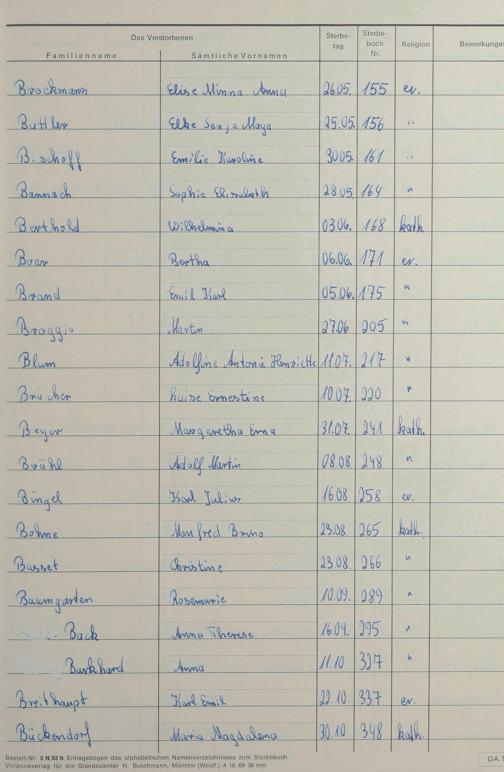 Des Verstorbenen Sterbe- Sterbe-
Familienname Sämtliche Vornamen tag buch Nr. Religion Bemerkungen
Brockmann Elise Minna Anna 26.05. 155 ev.
Buttler Elke Sonja Maya 25.05. 156 "
Bischoff Emilie Karoline 30.05 161 "
Bannach Sophie Elisabeth 28.05 164 "
Berthold Wilhelmina 03.06. 168 kath.
Boar Bertha 06.06. 171 ev.
Brand Emil Karl 05.06. 175 "
Broggio Martin 27.06 205 "
Blum Adolfine Antonie Henriette 11.07. 217 "
Brücher Luise Ernestine 10.07. 220 "
Beyer Margaretha Erna 31.07. 241 kath.
Brühl Adolf Martin 08.08 248 "
Bingel Karl Julius 16.08 258 ev.
Bohne Manfred Bruno 23.08. 265 kath.
Basset Christine 23.08 266 "
Baumgarten Rosemarie 10.09. 289 "
Back Anna Therese 16.09. 295 "
Burkhard Anna 11.10 327 "
Breithaupt Karl Emil 22.10. 337 ev.
Bückendorf Maria Magdalena 30.10 348 kath.
Bestell-Nr. 6 N 03 b Einlagebogen des alphabetischen Namenverzeichnisses zum Sterbebuch
Vordruckverlag für die Standesämter H. Buschmann, Münster (Westf.) 4 10. 68 36 mm
DA